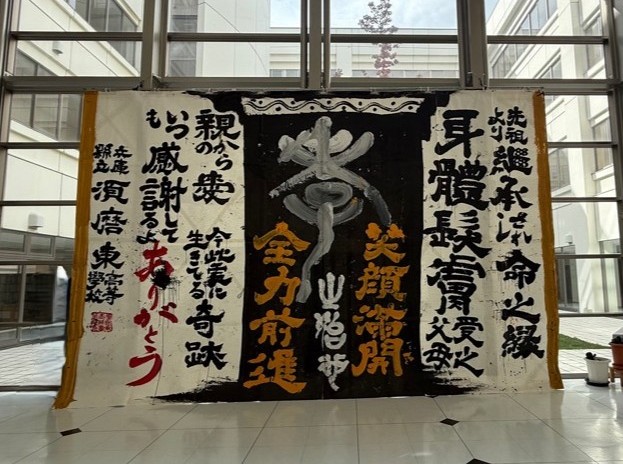 先祖
より継承され
し命之縁
身體髪膚受之
父母
笑顔満開
全力前進
親から
の愛
今此處に
生きてる奇跡
いつ
も感謝して
るよ
ありがとう
兵庫
縣立須磨東高等
學校